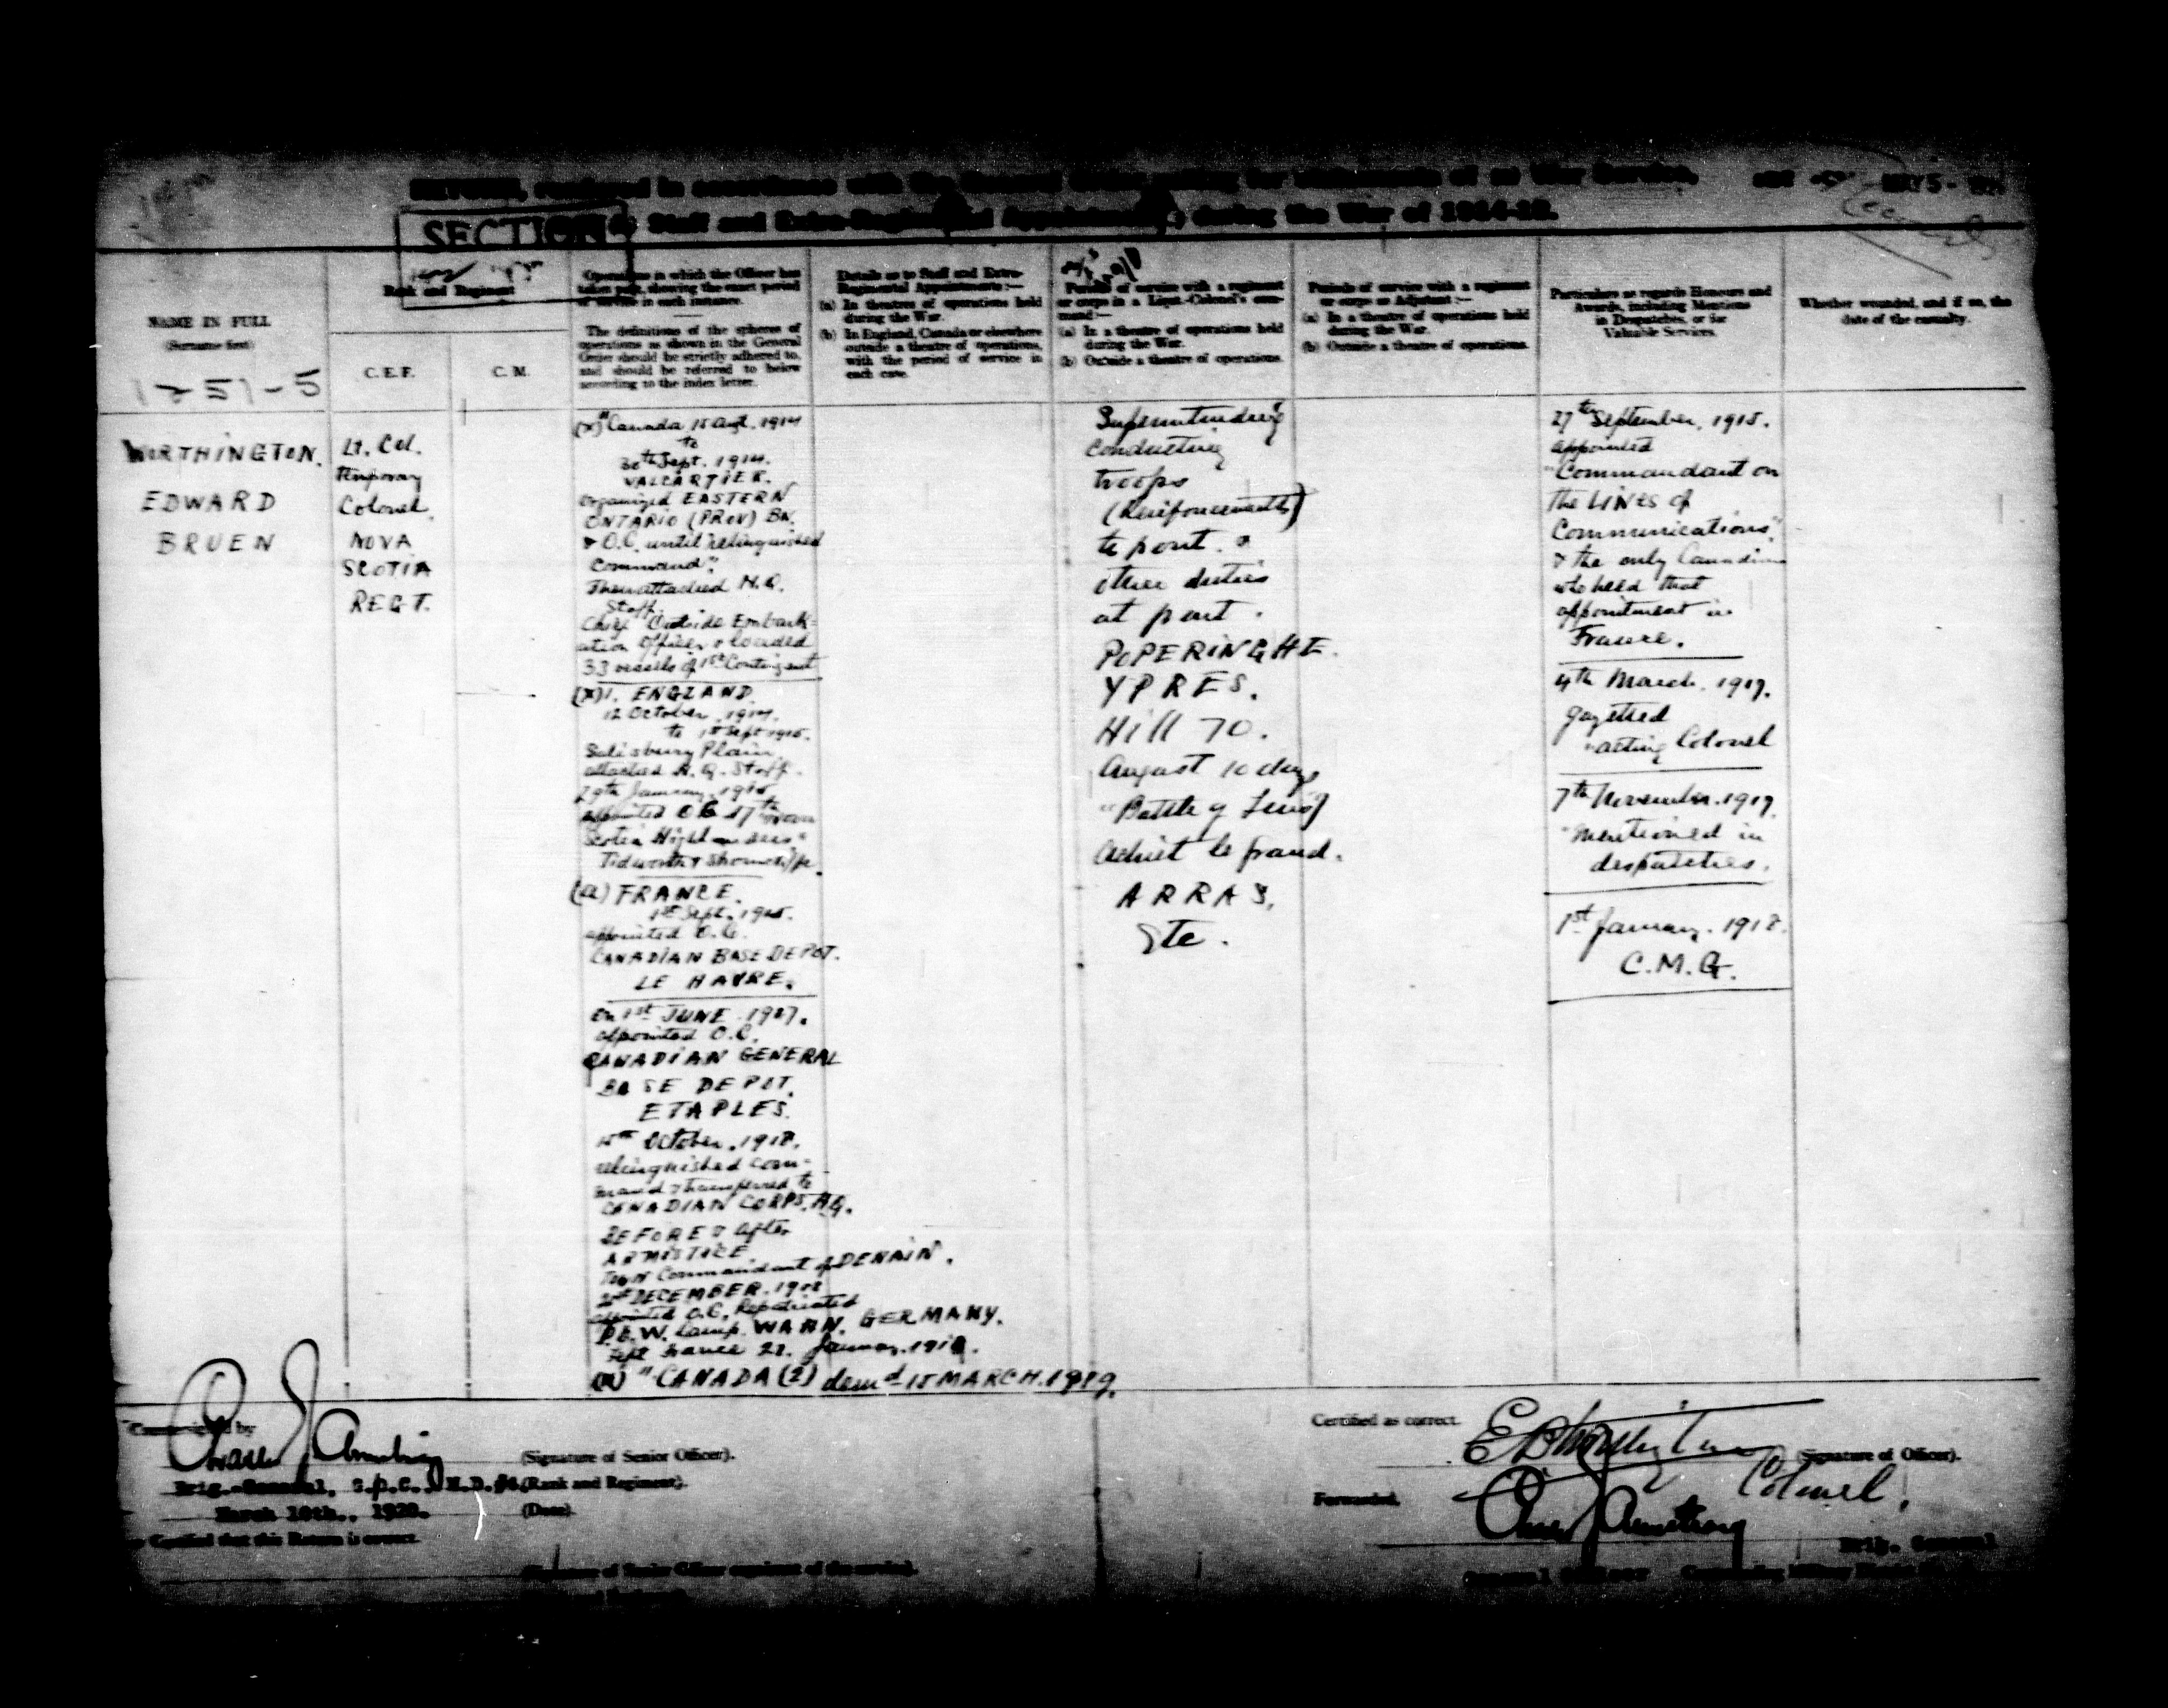 rendered in accordance with the General
SECTION
Staff and Extra-Regimental Appointments, during the War of 1914-19.
MAY 5 -
NAME IN FULL
(Surname first)
1-251-5
Rank and Regiment
C.E.F.
C.M.
Operations in which the Officer has
taken part, showing the exact period
of service in each instance.
The definitions of the spheres of
operations as shown in the General
Order should be strictly adhered to,
and should be referred to below
according to the index letter.
Details as to Staff and Extra-
Regimental Appointments:—
(a) In theatres of operations held
during the War.
(b) In England, Canada or elsewhere
outside a theatre of operations,
with the period of service in
each case.
Periods of service with a regiment
or corps in a Lieut.-Colonel's com-
mand:—
(a) In a theatre of operations held
during the War.
(b) Outside a theatre of operations.
Periods of service with a regiment
or corps as Adjutant:—
(a) In a theatre of operations held
during the War.
(b) Outside a theatre of operations.
Particulars as regards Honours and
Awards, including Mentions
in Despatches, or for
Valuable Services.
Whether wounded, and if so, the
date of the casualty.
WORTHINGTON.
EDWARD
BRUEN
Lt. Col.
temporary
Colonel.
NOVA
SCOTIA
REGT.
(X) "Canada 15 Augt. 1914
to
30th Sept. 1914.
VALCARTIER.
Organized EASTERN
ONTARIO (PROV) BN.
& O.C. until relinquished
Command".
Then attached H.Q.
Staff.
Chief Outside Embark-
ation Officer & loaded
33 vessels of 1st Contingent
(X) 1. ENGLAND
12 October, 1914.
to 1st Sept 1915.
Salisbury Plain,
attached H.Q. Staff.
29th January, 1915
appointed O.C. 17th Nova
Scotia Highlanders"
Tidworth & Shorncliffe.
(a) FRANCE.
1st Sept. 1915.
appointed O.C.
CANADIAN BASE DEPOT.
LE HAVRE.
On 1st JUNE. 1917.
appointed O.C.
CANADIAN GENERAL
BASE DEPOT.
ETAPLES.
October, 1918.
relinquished com-
mand & transferred to
CANADIAN CORPS. HQ.
BEFORE & after
ARMISTICE
Town Commandant of DENAIN.
DECEMBER. 1918
appointed O.C. Repatriated
P.O.W. Camp. WAHN. GERMANY.
left France 22. January.
(X) "CANADA (2) demd 15 MARCH. 1919.
Superintending
Conducting
troops
(Reinforcements)
to front. &
other duties
at front.
POPERINGHE.
YPRES.
Hill 70.
August 10 days
"Battle of Lens"
Achiet le grand.
ARRAS,
Etc.
27th September, 1915.
appointed
"Commandant on
the LINES of
Communications"
& the only Canadian
who held that
appointment in
France.
4th March, 1917.
gazetted
"acting Colonel
7th November. 1917.
"Mentioned in
despatches.
1st January. 1918.
C.M.G.
Countersigned by
(Signature of Senior Officer).
Brig.-General,
(Rank and Regiment).
March 10th., 1920.
(Date)
Certified that this Return is correct.
(Signature of Senior Officer cognizant of the service).
Certified as correct.
E B Worthington
(Signature of Officer).
Colonel,
Forwarded,
Armstrong
Brig. General